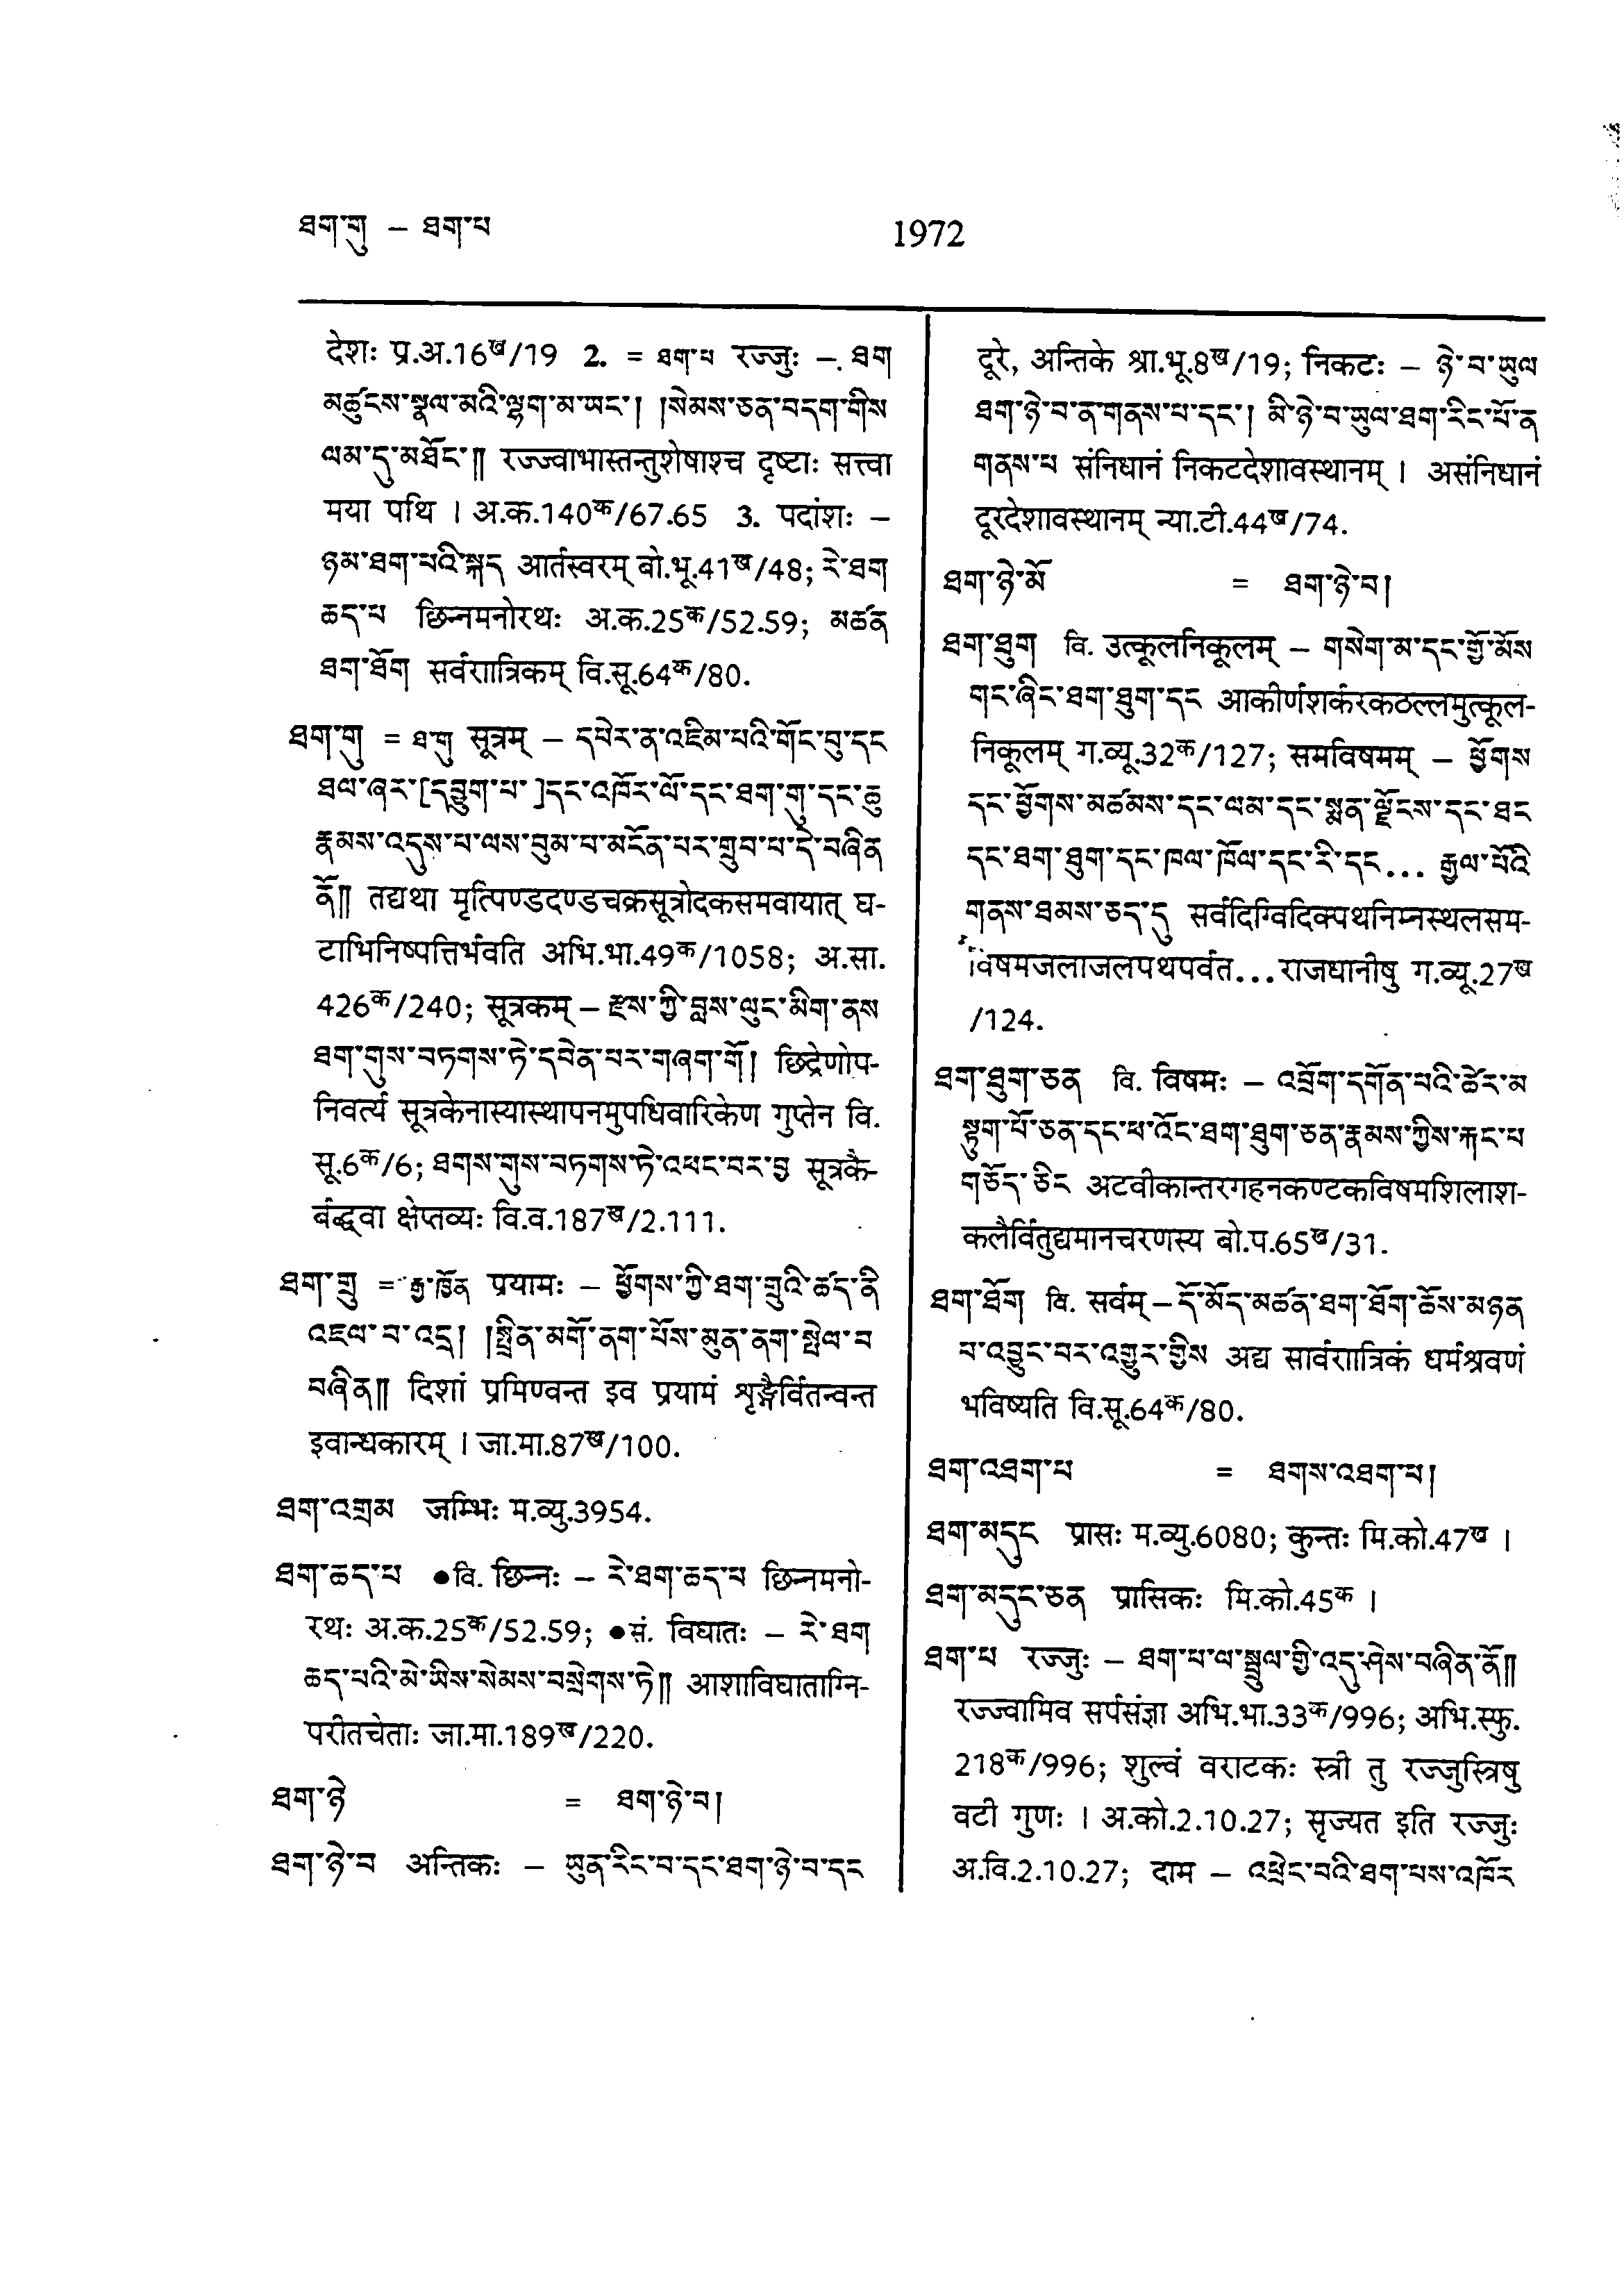 ཐག་གུ – ཐག་པ
1972
देशः प्र.अ.16ख/19 2. = ཐག་པ रज्जुः –. ཐག
མཚུངས་སྣལ་མའི་ལྷག་མ་ཡང་། །སེམས་ཅན་བདག་གིས
ལམ་དུ་མཐོང་༎ रज्ज्वाभास्तन्तुशेषाश्च दृष्टाः सत्त्वा
मया पथि । अ.क.140क/67.65 3. पदांशः –
ཉམ་ཐག་པའི་སྐད आर्तस्वरम् बो.भू.41ख/48; རེ་ཐག
ཆད་པ छिन्नमनोरथः अ.क.25क/52.59; མཚན
ཐག་ཐོག सर्वरात्रिकम् वि.सू.64क/80.
ཐག་གུ = ཐ་གུ सूत्रम् – དཔེར་ན་འཇིམ་པའི་གོང་བུ་དང
ཐལ་ཞར་[དབྱུག་པ་]དང་འཁོར་ལོ་དང་ཐག་གུ་དང་ཆུ
རྣམས་འདུས་པ་ལས་བུམ་པ་མངོན་པར་གྲུབ་པ་དེ་བཞིན
ནོ༎ तद्यथा मृत्पिण्डदण्डचक्रसूत्रोदकसमवायात् घ-
टाभिनिष्पत्तिर्भवति अभि.भा.49क/1058; अ.सा.
426क/240; सूत्रकम् – རྫས་ཀྱི་བླས་ལུང་མིག་ནས
ཐག་གུས་བཏགས་ཏེ་དབེན་པར་གཞག་གོ། छिद्रेणोप-
निवर्त्य सूत्रकेनास्यास्थापनमुपधिवारिकेण गुप्तेन वि.
सू.6क/6; ཐགས་གུས་བཏགས་ཏེ་འཕང་བར་བྱ सूत्रकै-
र्बद्ध्वा क्षेप्तव्यः वि.व.187ख/2.111.
ཐག་གྲུ = རྒྱ་ཁྱོན प्रयामः – ཕྱོགས་ཀྱི་ཐག་གྲུའི་ཚད་ནི
འཇལ་བ་འདྲ། །སྤྲིན་མགོ་ནག་པོས་མུན་ནག་སྤེལ་བ
བཞིན༎ दिशां प्रमिण्वन्त इव प्रयामं शृङ्गैर्वितन्वन्त
इवान्धकारम् । जा.मा.87ख/100.
ཐག་འགྲམ जम्भिः म.व्यु.3954.
ཐག་ཆད་པ ●वि. छिन्नः – རེ་ཐག་ཆད་པ छिन्नमनो-
रथः अ.क.25क/52.59; ●सं. विघातः – རེ་ཐག
ཆད་པའི་མེ་ཡིས་སེམས་བསྲེགས་ཏེ༎ आशाविघाताग्नि-
परीतचेताः जा.मा.189ख/220.
ཐག་ཉེ = ཐག་ཉེ་བ།
ཐག་ཉེ་བ अन्तिकः – ཡུན་རིང་བ་དང་ཐག་ཉེ་བ་དང
दूरे, अन्तिके श्रा.भू.8ख/19; निकटः – ཉེ་བ་ཡུལ
ཐག་ཉེ་བ་ན་གནས་པ་དང་། མི་ཉེ་བ་ཡུལ་ཐག་རིང་པོ་ན
གནས་པ संनिधानं निकटदेशावस्थानम् । असंनिधानं
दूरदेशावस्थानम् न्या.टी.44ख/74.
ཐག་ཉེ་མོ = ཐག་ཉེ་བ།
ཐག་ཐུག वि. उत्कूलनिकूलम् – གསེག་མ་དང་གྱོ་མོས
གང་ཞིང་ཐག་ཐུག་དང आकीर्णशर्करकठल्लमुत्कूल-
निकूलम् ग.व्यू.32क/127; समविषमम् – ཕྱོགས
དང་ཕྱོགས་མཚམས་དང་ལམ་དང་སྨན་ལྗོངས་དང་ཐང
དང་ཐག་ཐུག་དང་ཁལ་ཁོལ་དང་རི་དང... རྒྱལ་པོའི
གནས་ཐམས་ཅད་དུ सर्वदिग्विदिक्पथनिम्नस्थलसम-
विषमजलाजलपथपर्वत...राजधानीषु ग.व्यू.27ख
/124.
ཐག་ཐུག་ཅན वि. विषमः – འབྲོག་དགོན་པའི་ཚེར་མ
སྟུག་པོ་ཅན་དང་ཕ་འོང་ཐག་ཐུག་ཅན་རྣམས་ཀྱིས་རྐང་པ
གཅོད་ཅིང अटवीकान्तरगहनकण्टकविषमशिलाश-
कलैर्वितुद्यमानचरणस्य बो.प.65ख/31.
ཐག་ཐོག वि. सर्वम् – དོ་མོད་མཚན་ཐག་ཐོག་ཆོས་མཉན
པ་འབྱུང་བར་འགྱུར་གྱིས अद्य सार्वरात्रिकं धर्मश्रवणं
भविष्यति वि.सू.64क/80.
ཐག་འཐག་པ = ཐགས་འཐག་པ།
ཐག་མདུང प्रासः म.व्यु.6080; कुन्तः मि.को.47ख ।
ཐག་མདུང་ཅན प्रासिकः मि.को.45क ।
ཐག་པ रज्जुः – ཐག་པ་ལ་སྦྲུལ་གྱི་འདུ་ཤེས་བཞིན་ནོ༎
रज्ज्वामिव सर्पसंज्ञा अभि.भा.33क/996; अभि.स्फु.
218क/996; शुल्वं वराटकः स्त्री तु रज्जुस्त्रिषु
वटी गुणः । अ.को.2.10.27; सृज्यत इति रज्जुः
अ.वि.2.10.27; दाम – འཕྲེང་བའི་ཐག་པས་འཁོར